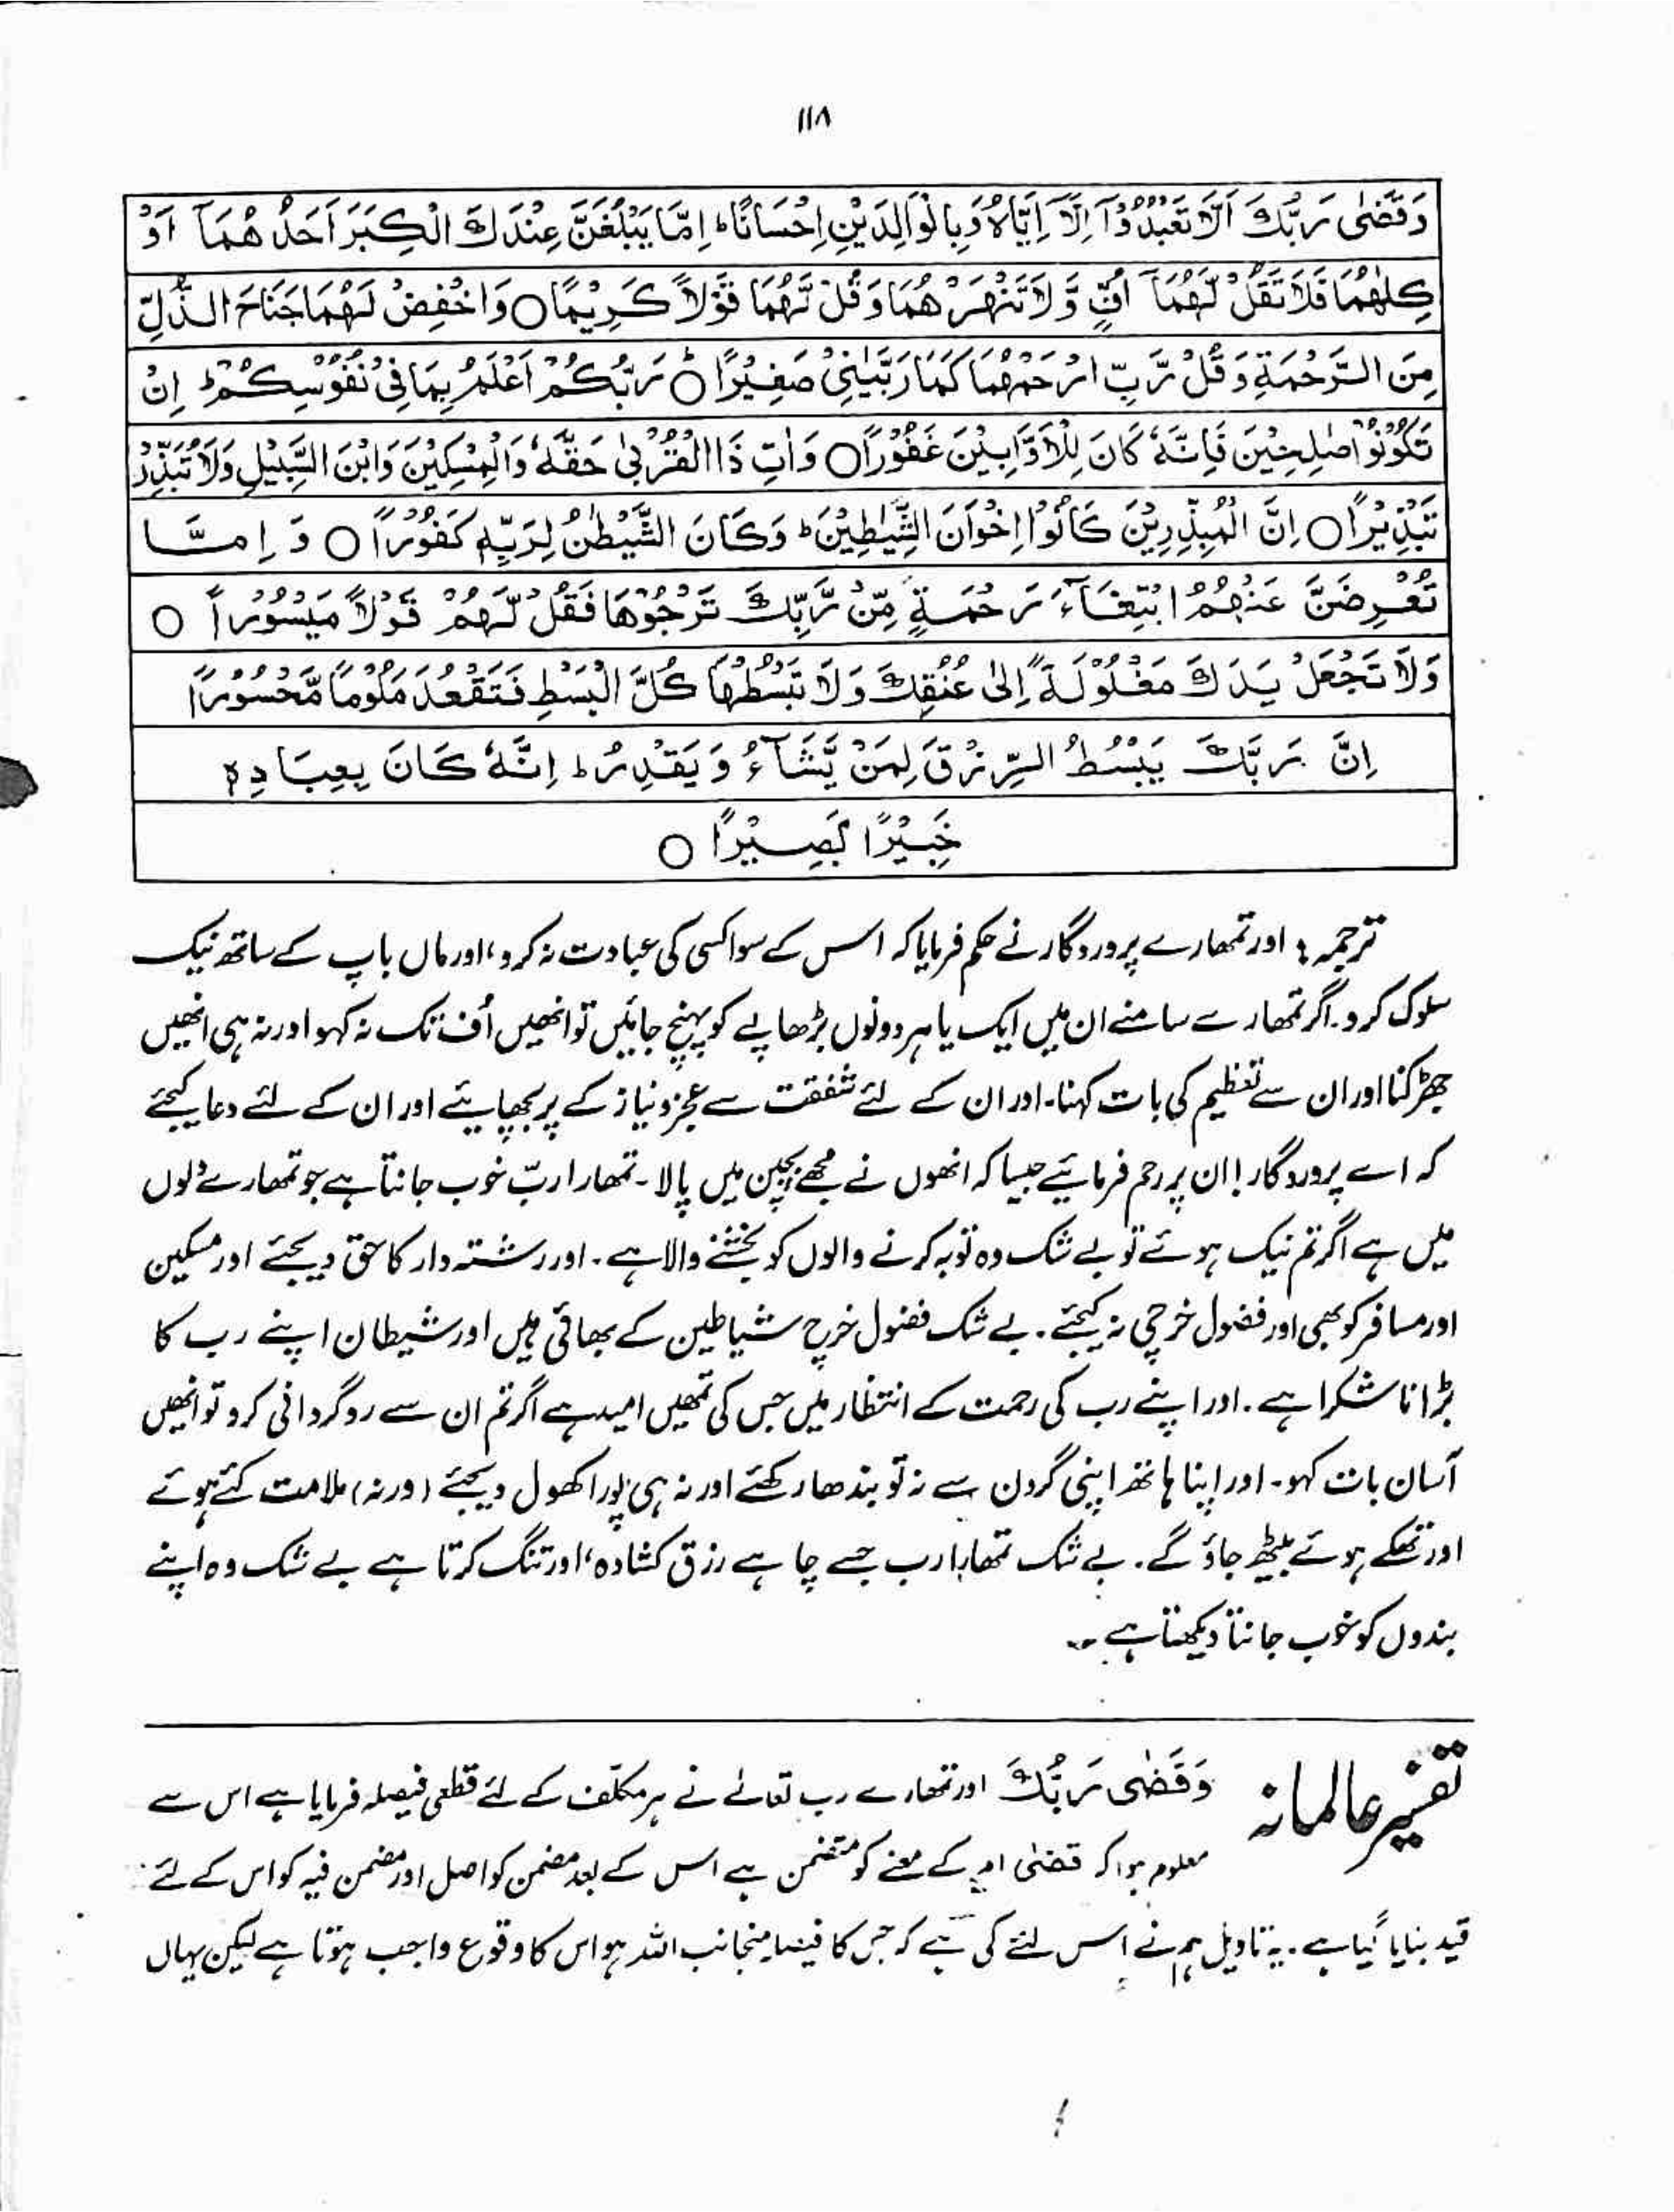 ۱۱۸
وَقَضٰى رَبُّكَ اَلَّا تَعْبُدُوْٓا اِلَّآ اِيَّاهُ وَبِالْوَالِدَيْنِ اِحْسَانًا ؕ اِمَّا يَبْلُغَنَّ عِنْدَكَ الْكِبَرَ اَحَدُهُمَآ اَوْ
كِلٰهُمَا فَلَا تَقُلْ لَّهُمَآ اُفٍّ وَّلَا تَنْهَرْهُمَا وَقُلْ لَّهُمَا قَوْلًا كَرِيْمًا ○ وَاخْفِضْ لَهُمَا جَنَاحَ الذُّلِّ
مِنَ الرَّحْمَةِ وَقُلْ رَّبِّ ارْحَمْهُمَا كَمَا رَبَّيٰنِيْ صَغِيْرًا ○ؕ رَبُّكُمْ اَعْلَمُ بِمَا فِيْ نُفُوْسِكُمْ ؕ اِنْ
تَكُوْنُوْا صٰلِحِيْنَ فَاِنَّهٗ كَانَ لِلْاَوَّابِيْنَ غَفُوْرًا ○ وَاٰتِ ذَا الْقُرْبٰى حَقَّهٗ وَالْمِسْكِيْنَ وَابْنَ السَّبِيْلِ وَلَا تُبَذِّرْ
تَبْذِيْرًا ○ اِنَّ الْمُبَذِّرِيْنَ كَانُوْٓا اِخْوَانَ الشَّيٰطِيْنَ ؕ وَكَانَ الشَّيْطٰنُ لِرَبِّهٖ كَفُوْرًا ○ وَ اِمَّا
تُعْرِضَنَّ عَنْهُمُ ابْتِغَآءَ رَحْمَةٍ مِّنْ رَّبِّكَ تَرْجُوْهَا فَقُلْ لَّهُمْ قَوْلًا مَّيْسُوْرًا ○
وَلَا تَجْعَلْ يَدَكَ مَغْلُوْلَةً اِلٰى عُنُقِكَ وَلَا تَبْسُطْهَا كُلَّ الْبَسْطِ فَتَقْعُدَ مَلُوْمًا مَّحْسُوْرًا
اِنَّ رَبَّكَ يَبْسُطُ الرِّزْقَ لِمَنْ يَّشَآءُ وَيَقْدِرُ ؕ اِنَّهٗ كَانَ بِعِبَادِهٖ
خَبِيْرًا بَصِيْرًا ○
ترجمہ : اور تمھارے پروردگار نے حکم فرمایا کہ اس کے سوا کسی کی عبادت نہ کرو، اور ماں باپ کے ساتھ نیک
سلوک کرو۔ اگر تمھارے سامنے ان میں ایک یا ہر دونوں بڑھاپے کو پہنچ جائیں تو انھیں اُف تک نہ کہو اور نہ ہی انھیں
جھڑکنا اور ان سے تعظیم کی بات کہنا۔ اور ان کے لئے شفقت سے عجز و نیاز کے پر بچھایئے اور ان کے لئے دعا کیجئے
کہ اے پروردگار! ان پر رحم فرمائیے جیسا کہ انھوں نے مجھے بچپن میں پالا۔ تمھارا ربّ خوب جانتا ہے جو تمھارے دلوں
میں ہے اگر تم نیک ہوئے تو بے شک وہ توبہ کرنے والوں کو بخشنے والا ہے۔ اور رشتہ دار کا حق دیجئے اور مسکین
اور مسافر کو بھی اور فضول خرچی نہ کیجئے۔ بے شک فضول خرچ شیاطین کے بھائی ہیں اور شیطان اپنے رب کا
بڑا ناشکرا ہے۔ اور اپنے رب کی رحمت کے انتظار میں جس کی تمھیں امید ہے اگر تم ان سے روگردانی کرو تو انھیں
آسان بات کہو۔ اور اپنا ہاتھ اپنی گردن سے نہ تو بندھا رکھئے اور نہ ہی پورا کھول دیجئے (ورنہ) ملامت کئے ہوئے
اور تھکے ہوئے بیٹھ جاؤ گے۔ بے شک تمھارا رب جسے چاہے رزق کشادہ، اور تنگ کرتا ہے بے شک وہ اپنے
بندوں کو خوب جانتا دیکھتا ہے۔
تفسیر عالمانہ
وَقَضٰى رَبُّكَ اور تمھارے رب تعالےٰ نے ہر مکلّف کے لئے قطعی فیصلہ فرمایا ہے اس سے
معلوم ہوا کہ قضٰی امر کے معنے کو متضمن ہے اس کے بعد مضمن کو اصل اور مضمن فیہ کو اس کے لئے
قید بنایا گیا ہے۔ یہ تاویل ہم نے اس لئے کی ہے کہ جس کا فیصلہ منجانب اللہ ہو اس کا وقوع واجب ہوتا ہے لیکن یہاں